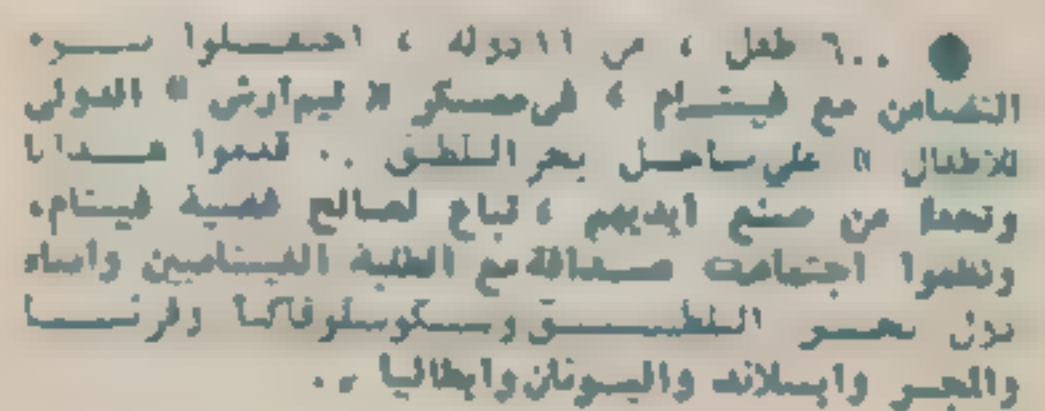 ● ٦٠٠ طفل ، من ١١ دولة ، احتفلوا بيوم
التضامن مع فيتنام ، في معسكر « ليم آرش » الدولي
للأطفال » على ساحل بحر البلطيق .. قدموا هدايا
وتحفا من صنع أيديهم ، تباع لصالح قضية فيتنام،
ونظموا اجتماعات صداقة مع الطلبة الفيتناميين وأبناء
دول بحر البلطيق وتشيكوسلوفاكيا وفرنسا
والمجر وايسلاند واليونان وايطاليا ..